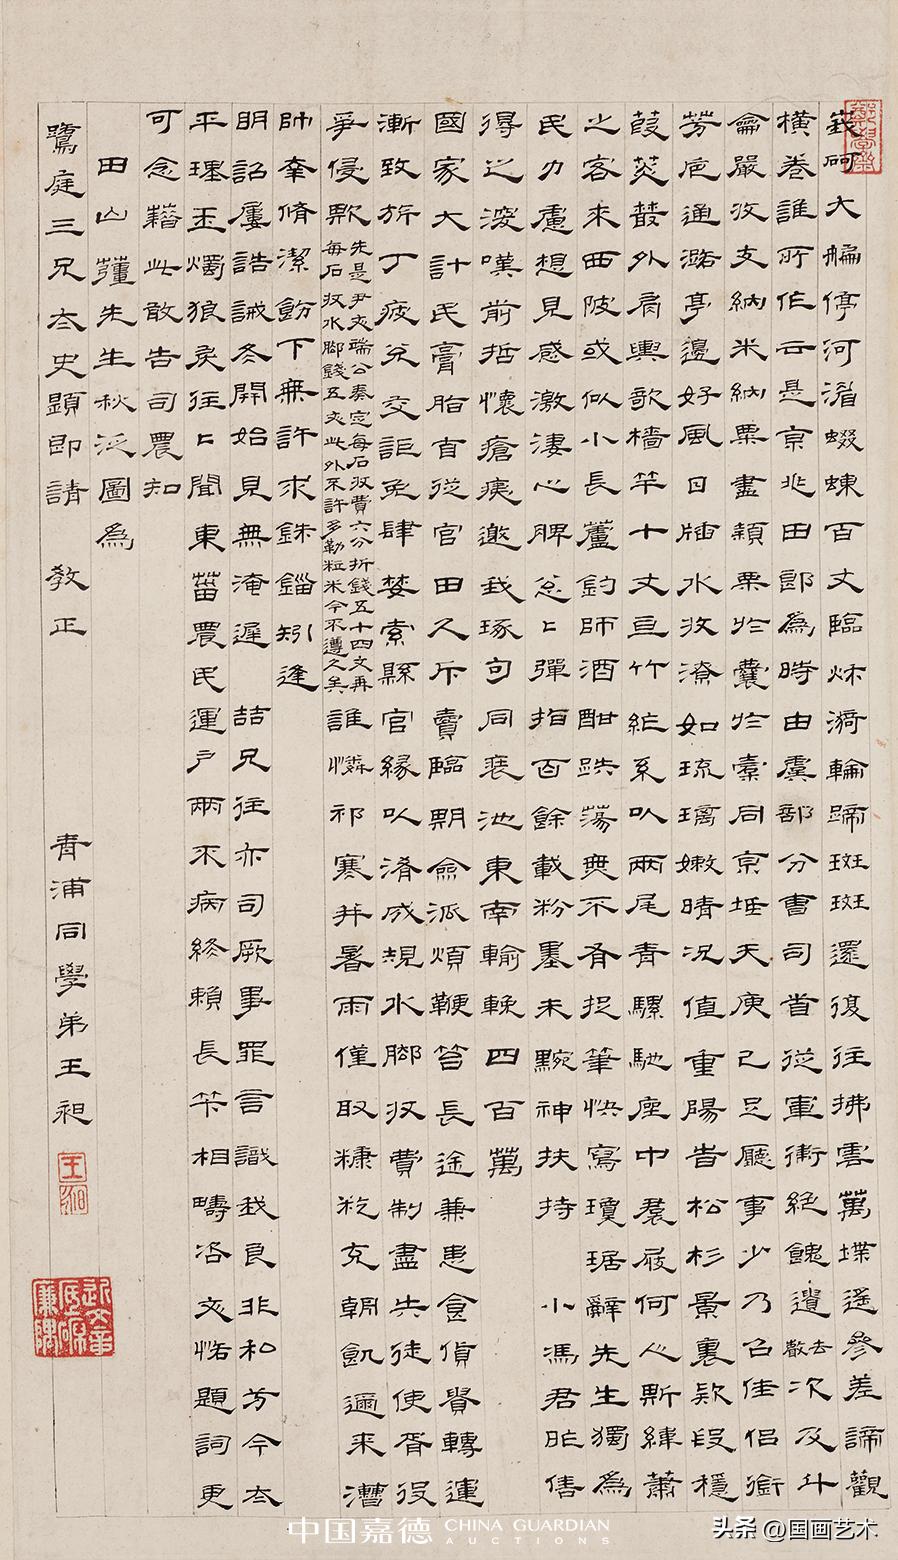 峩舸大艑停河湄蝃蝀百丈臨冰漪輪蹄斑斑還復往拂雲萬堞遙參差諦觀
橫卷誰所作云是京兆田郎為時由虞部分書司省從軍衛絕餽遺去聲次及斗
龠嚴收支納米納粟盡穎栗於囊於橐同京坻天庾已足廳事少乃召佳侶銜
芳卮通潞亭邊好風日牐水收潦如琉璃嫩晴況值重陽昔松杉景裏欵段穩
葭菼叢外肩輿歌檣竿十丈亘竹絙系以兩尾青騾馳座中裠屐何人斯練蕭
之客來西陂或似小長蘆釣師酒酣跌蕩無不有捉筆快寫瓊琚辭先生獨為
民力慮想見感激淒心脾忽忽彈指百餘載粉墨未黦神扶持 小馮君昨售
得之深嘆前哲懷瘡痍邀我琢句同裴池東南輸輓四百萬
國家大計民膏脂自從官田久斥賣臨期僉派煩鞭笞長途兼患食貨貴轉運
漸致旂丁疲兌交詎免肆婪索縣官緣以淆成規水腳收費制盡失徒使胥役
爭侵欺先是尹文端公奏定每石收費六分折錢五十四文再每石收水腳錢五文此外不許多勒粒米今不遵久矣誰憐祁寒并暑雨僅取糠籺充朝飢邇來漕
帥奉脩潔飭下無許求銖錙矧逢
明詔屢誥誡冬開始見無淹遲 喆兄往亦司厥事罪言識我良非私方今太
平璂玉燭狼戾往往聞東菑農民運戶兩不病終賴長筞相疇咨文恬題詞更
可念藉此敢告司農知
田山薑先生秋泛圖為
鷺庭三兄太史題即請 教正 青浦同學弟王昶
王昶
近文章砥厲廉隅
中国嘉德 CHINA GUARDIAN AUCTIONS
头条 @国画艺术